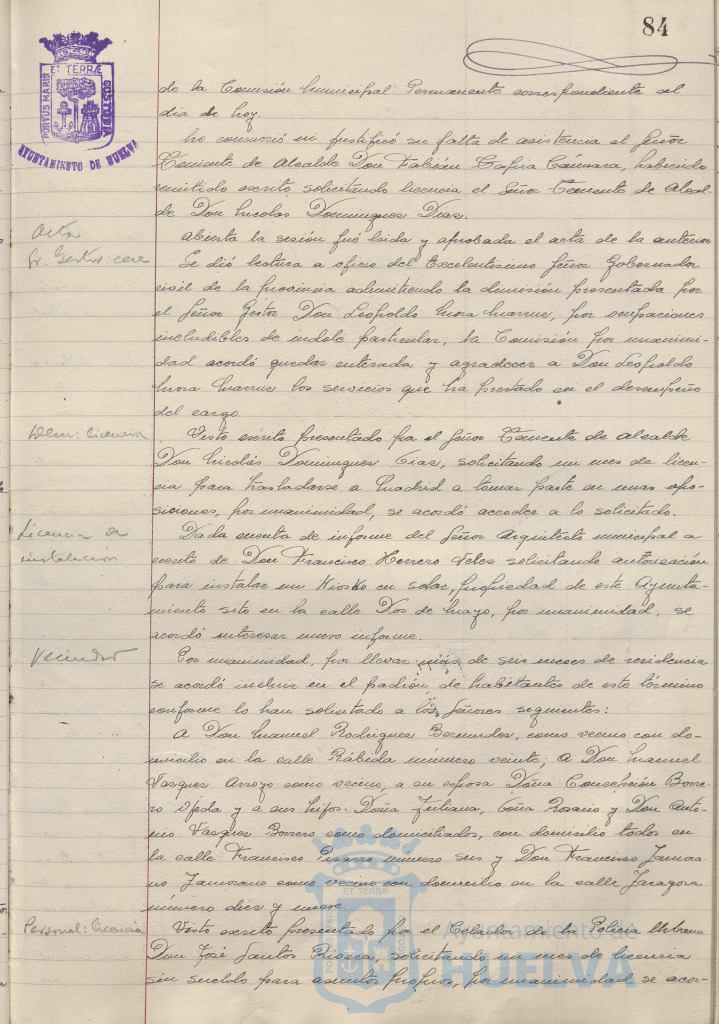 84
PORTUS MARIS ET TERRÆ CUSTODIA
AYUNTAMIENTO DE HUELVA
de la Comisión Municipal Permanente correspondiente al
dia de hoy.
No concurrió ni justificó su falta de asistencia el Señor
Teniente de Alcalde Don Fabián Cámara, habiendo
remitido escrito solicitando licencia el Señor Teniente de Alcal-
de Don Nicolas Dominguez Dias.
Acta
Abierta la sesión fué leida y aprobada el acta de la anterior
Sr. Gestor: cese
Se dió lectura a oficio del Excelentísimo Señor Gobernador
civil de la provincia admitiendo la dimisión presentada por
el Señor Gestor Don Leopoldo Mora, por ocupaciones
ineludibles de indole particular, la Comisión por unanimi-
dad acordó quedar enterada y agradecer a Don Leopoldo
Mora los servicios que ha prestado en el desempeño
del cargo.
Idem: licencia
Visto escrito presentado por el Señor Teniente de alcalde
Don Nicolás Dominguez Dias, solicitando un mes de licen-
cia para trasladarse a Madrid a tomar parte en unas opo-
siciones, por unanimidad, se acordó acceder a lo solicitado.
Licencia de
instalación
Dada cuenta de informe del Señor Arquitecto municipal a
escrito de Don Francisco Herrero Velez solicitando autorización
para instalar un Kiosko en solar, propiedad de este Ayunta-
miento sito en la calle Dos de Mayo, por unanimidad, se
acordó interesar nuevo informe.
Vecindad
Por unanimidad, por llevar más de seis meses de residencia
se acordó incluir en el padrón de habitantes de este término
conforme lo han solicitado a los Señores siguientes:
A Don Manuel Rodriguez Bermudez, como vecino con do-
micilio en la calle Rábida número veinte; a Don Manuel
Vasquez Arroyo como vecino, a su esposa Doña Concepción Borre-
ro Ojeda y a sus hijos. Doña Juliana, Doña Rosario y Don Anto-
nio Vasquez Borrero como domiciliados, con domicilio todos en
la calle Francisco Pisarro número seis y Don Francisco Zamora-
no Zamorano como vecino con domicilio en la calle Zaragoza
número diez y nueve.
Personal: licencia
Visto escrito presentado por el Celador de la Policia Urbana
Don José Santos Rioera, solicitando un mes de licencia
sin sueldo para asuntos propios, por unanimidad se acor-
Ayuntamiento de
HUELVA